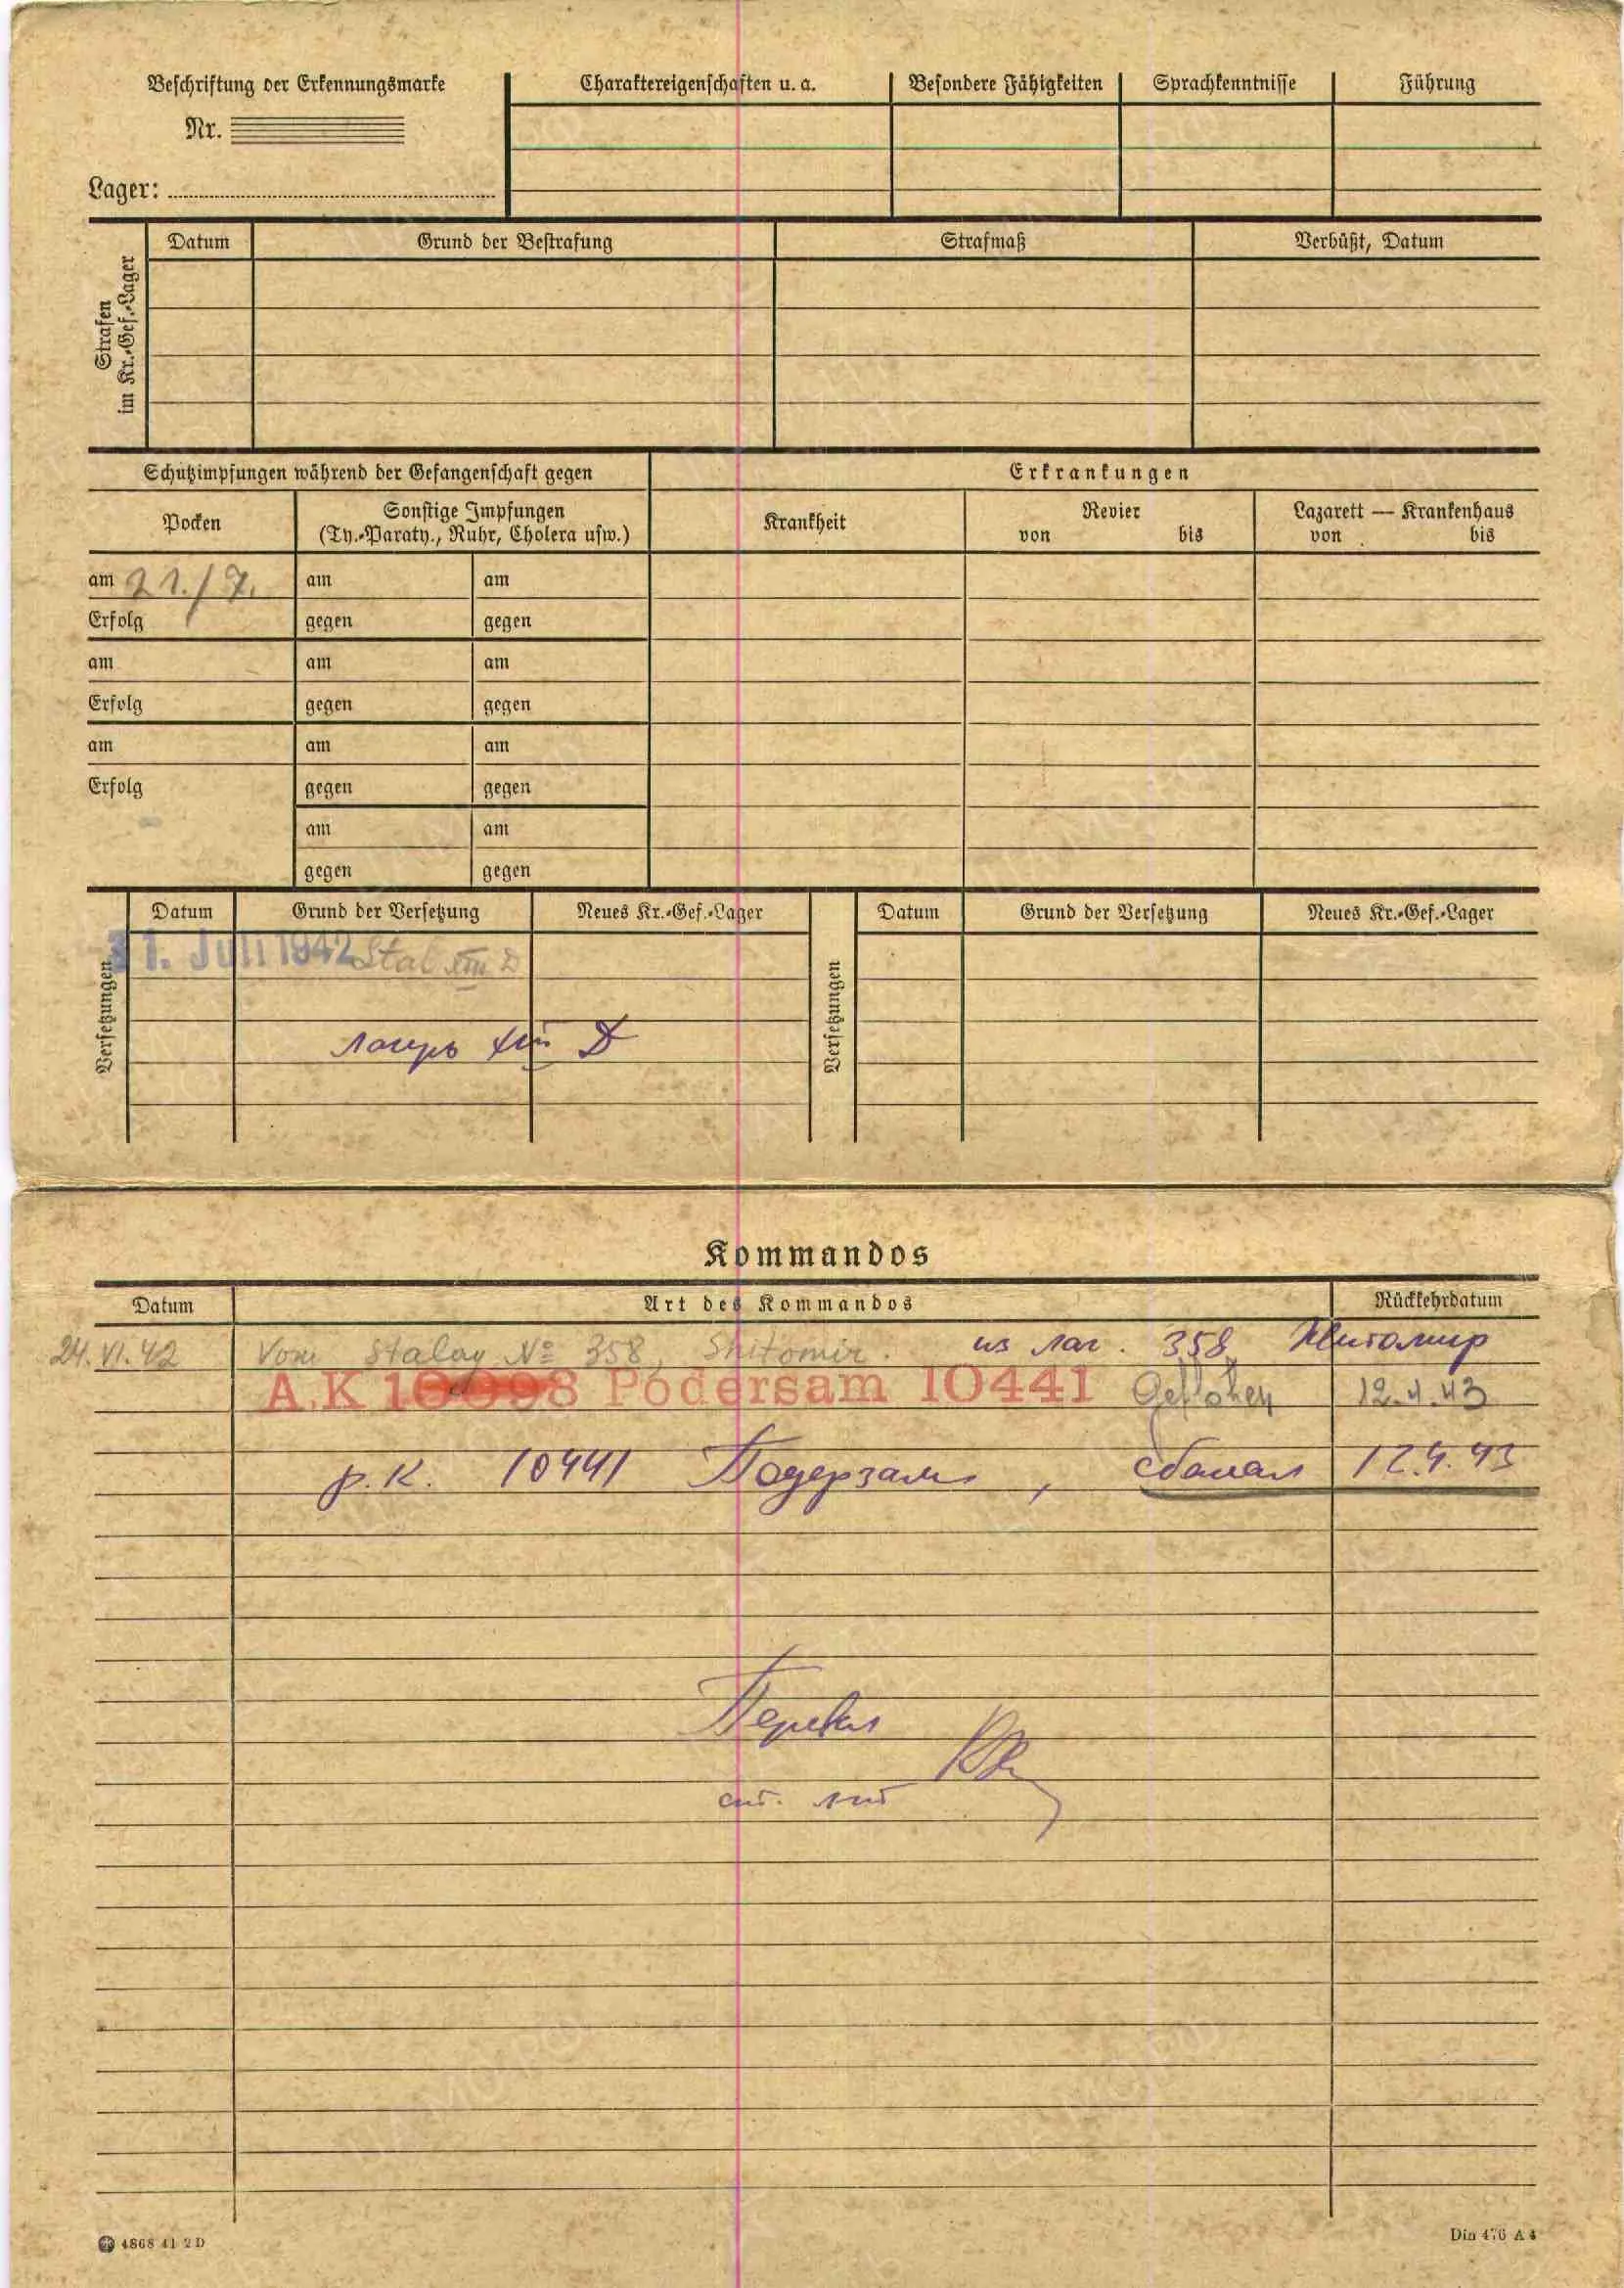 Beschriftung der Erkennungsmarke
Nr.
Lager:
Charaktereigenschaften u. a.
Besondere Fähigkeiten
Sprachkenntnisse
Führung
Strafen
im Kr.-Gef.-Lager
Datum
Grund der Bestrafung
Strafmaß
Verbüßt, Datum
Schutzimpfungen während der Gefangenschaft gegen
Erkrankungen
Pocken
Sonstige Impfungen
(Ty.-Paraty., Ruhr, Cholera usw.)
Krankheit
Revier
von bis
Lazarett — Krankenhaus
von bis
am 21./7. am am
Erfolg gegen gegen
am am am
Erfolg gegen gegen
am am am
Erfolg gegen gegen
am am
gegen gegen
Versetzungen
Datum
Grund der Versetzung
Neues Kr.-Gef.-Lager
Versetzungen
Datum
Grund der Versetzung
Neues Kr.-Gef.-Lager
31. Juli 1942 Stal XIII B
лагерь XIII B
Kommandos
Datum
Art des Kommandos
Rückkehrdatum
24.VI.42 Vom Stalag № 358, Shitomir. из лаг. 358 Житомир
A.K 10098 Podersam 10441 Geflohen 12.4.43
р.к. 10441 Подерзам, сбежал 12.4.43
Перевел
ст. л-т
4868 41 2 D
Din 476 A 4